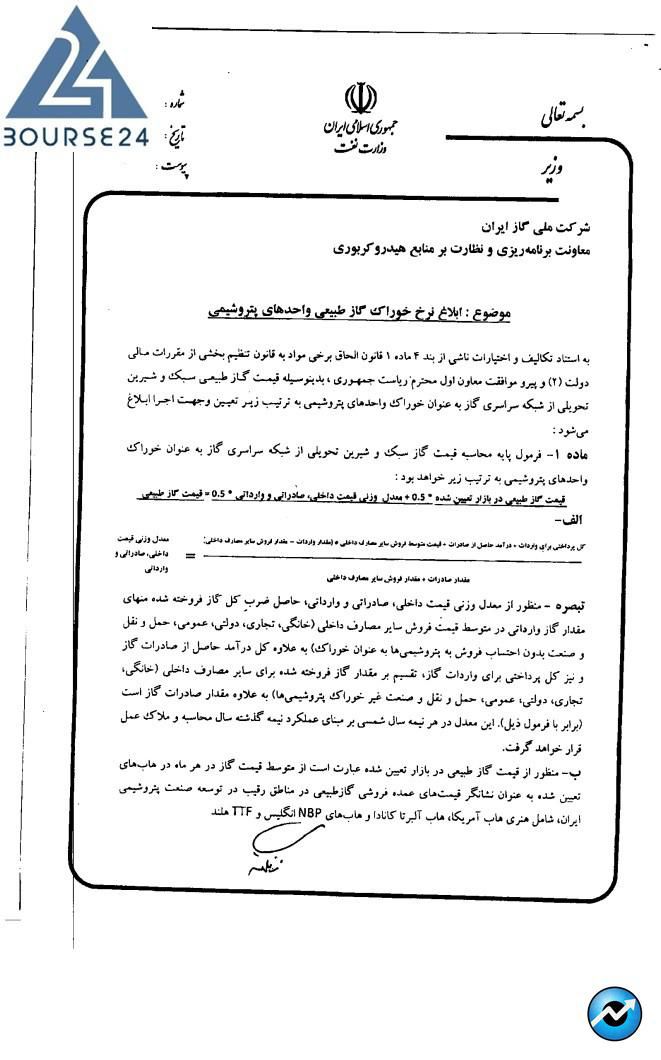 BOURSE24
بسمه تعالی
جمهوری اسلامی ایران
وزارت نفت
وزیر
شماره :
تاریخ :
پیوست :
شرکت ملی گاز ایران
معاونت برنامه‌ریزی و نظارت بر منابع هیدروکربوری
موضوع : ابلاغ نرخ خوراک گاز طبیعی واحدهای پتروشیمی
به استناد تکالیف و اختیارات ناشی از بند ۴ ماده ۱ قانون الحاق برخی مواد به قانون تنظیم بخشی از مقررات مالی
دولت (۲) و پیرو موافقت معاون اول محترم ریاست جمهوری ، بدینوسیله قیمت گاز طبیعی سبک و شیرین
تحویلی از شبکه سراسری گاز به عنوان خوراک واحدهای پتروشیمی به ترتیب زیر تعیین وجهت اجرا ابلاغ
می‌شود :
ماده ۱- فرمول پایه محاسبه قیمت گاز سبک و شیرین تحویلی از شبکه سراسری گاز به عنوان خوراک
واحدهای پتروشیمی به ترتیب زیر خواهد بود :
قیمت گاز طبیعی در بازار تعیین شده * 0.5 + معدل وزنی قیمت داخلی، صادراتی و وارداتی * 0.5 = قیمت گاز طبیعی
الف-
کل پرداختی برای واردات + درآمد حاصل از صادرات + قیمت متوسط فروش سایر مصارف داخلی * (مقدار واردات - مقدار فروش سایر مصارف داخلی)
مقدار صادرات + مقدار فروش سایر مصارف داخلی
= معدل وزنی قیمت
داخلی، صادراتی و
وارداتی
تبصره - منظور از معدل وزنی قیمت داخلی، صادراتی و وارداتی، حاصل ضرب کل گاز فروخته شده منهای
مقدار گاز وارداتی در متوسط قیمت فروش سایر مصارف داخلی (خانگی، تجاری، دولتی، عمومی، حمل و نقل
و صنعت بدون احتساب فروش به پتروشیمی‌ها به عنوان خوراک) به علاوه کل درآمد حاصل از صادرات گاز
و نیز کل پرداختی برای واردات گاز، تقسیم بر مقدار گاز فروخته شده برای سایر مصارف داخلی (خانگی،
تجاری، دولتی، عمومی، حمل و نقل و صنعت غیر خوراک پتروشیمی‌ها) به علاوه مقدار صادرات گاز است
(برابر با فرمول ذیل). این معدل در هر نیمه سال شمسی بر مبنای عملکرد نیمه گذشته سال محاسبه و ملاک عمل
قرار خواهد گرفت.
ب- منظور از قیمت گاز طبیعی در بازار تعیین شده عبارت است از متوسط قیمت گاز در هر ماه در هاب‌های
تعیین شده به عنوان نشانگر قیمت‌های عمده فروشی گازطبیعی در مناطق رقیب در توسعه صنعت پتروشیمی
ایران، شامل هنری هاب آمریکا، هاب آلبرتا کانادا و هاب‌های NBP انگلیس و TTF هلند